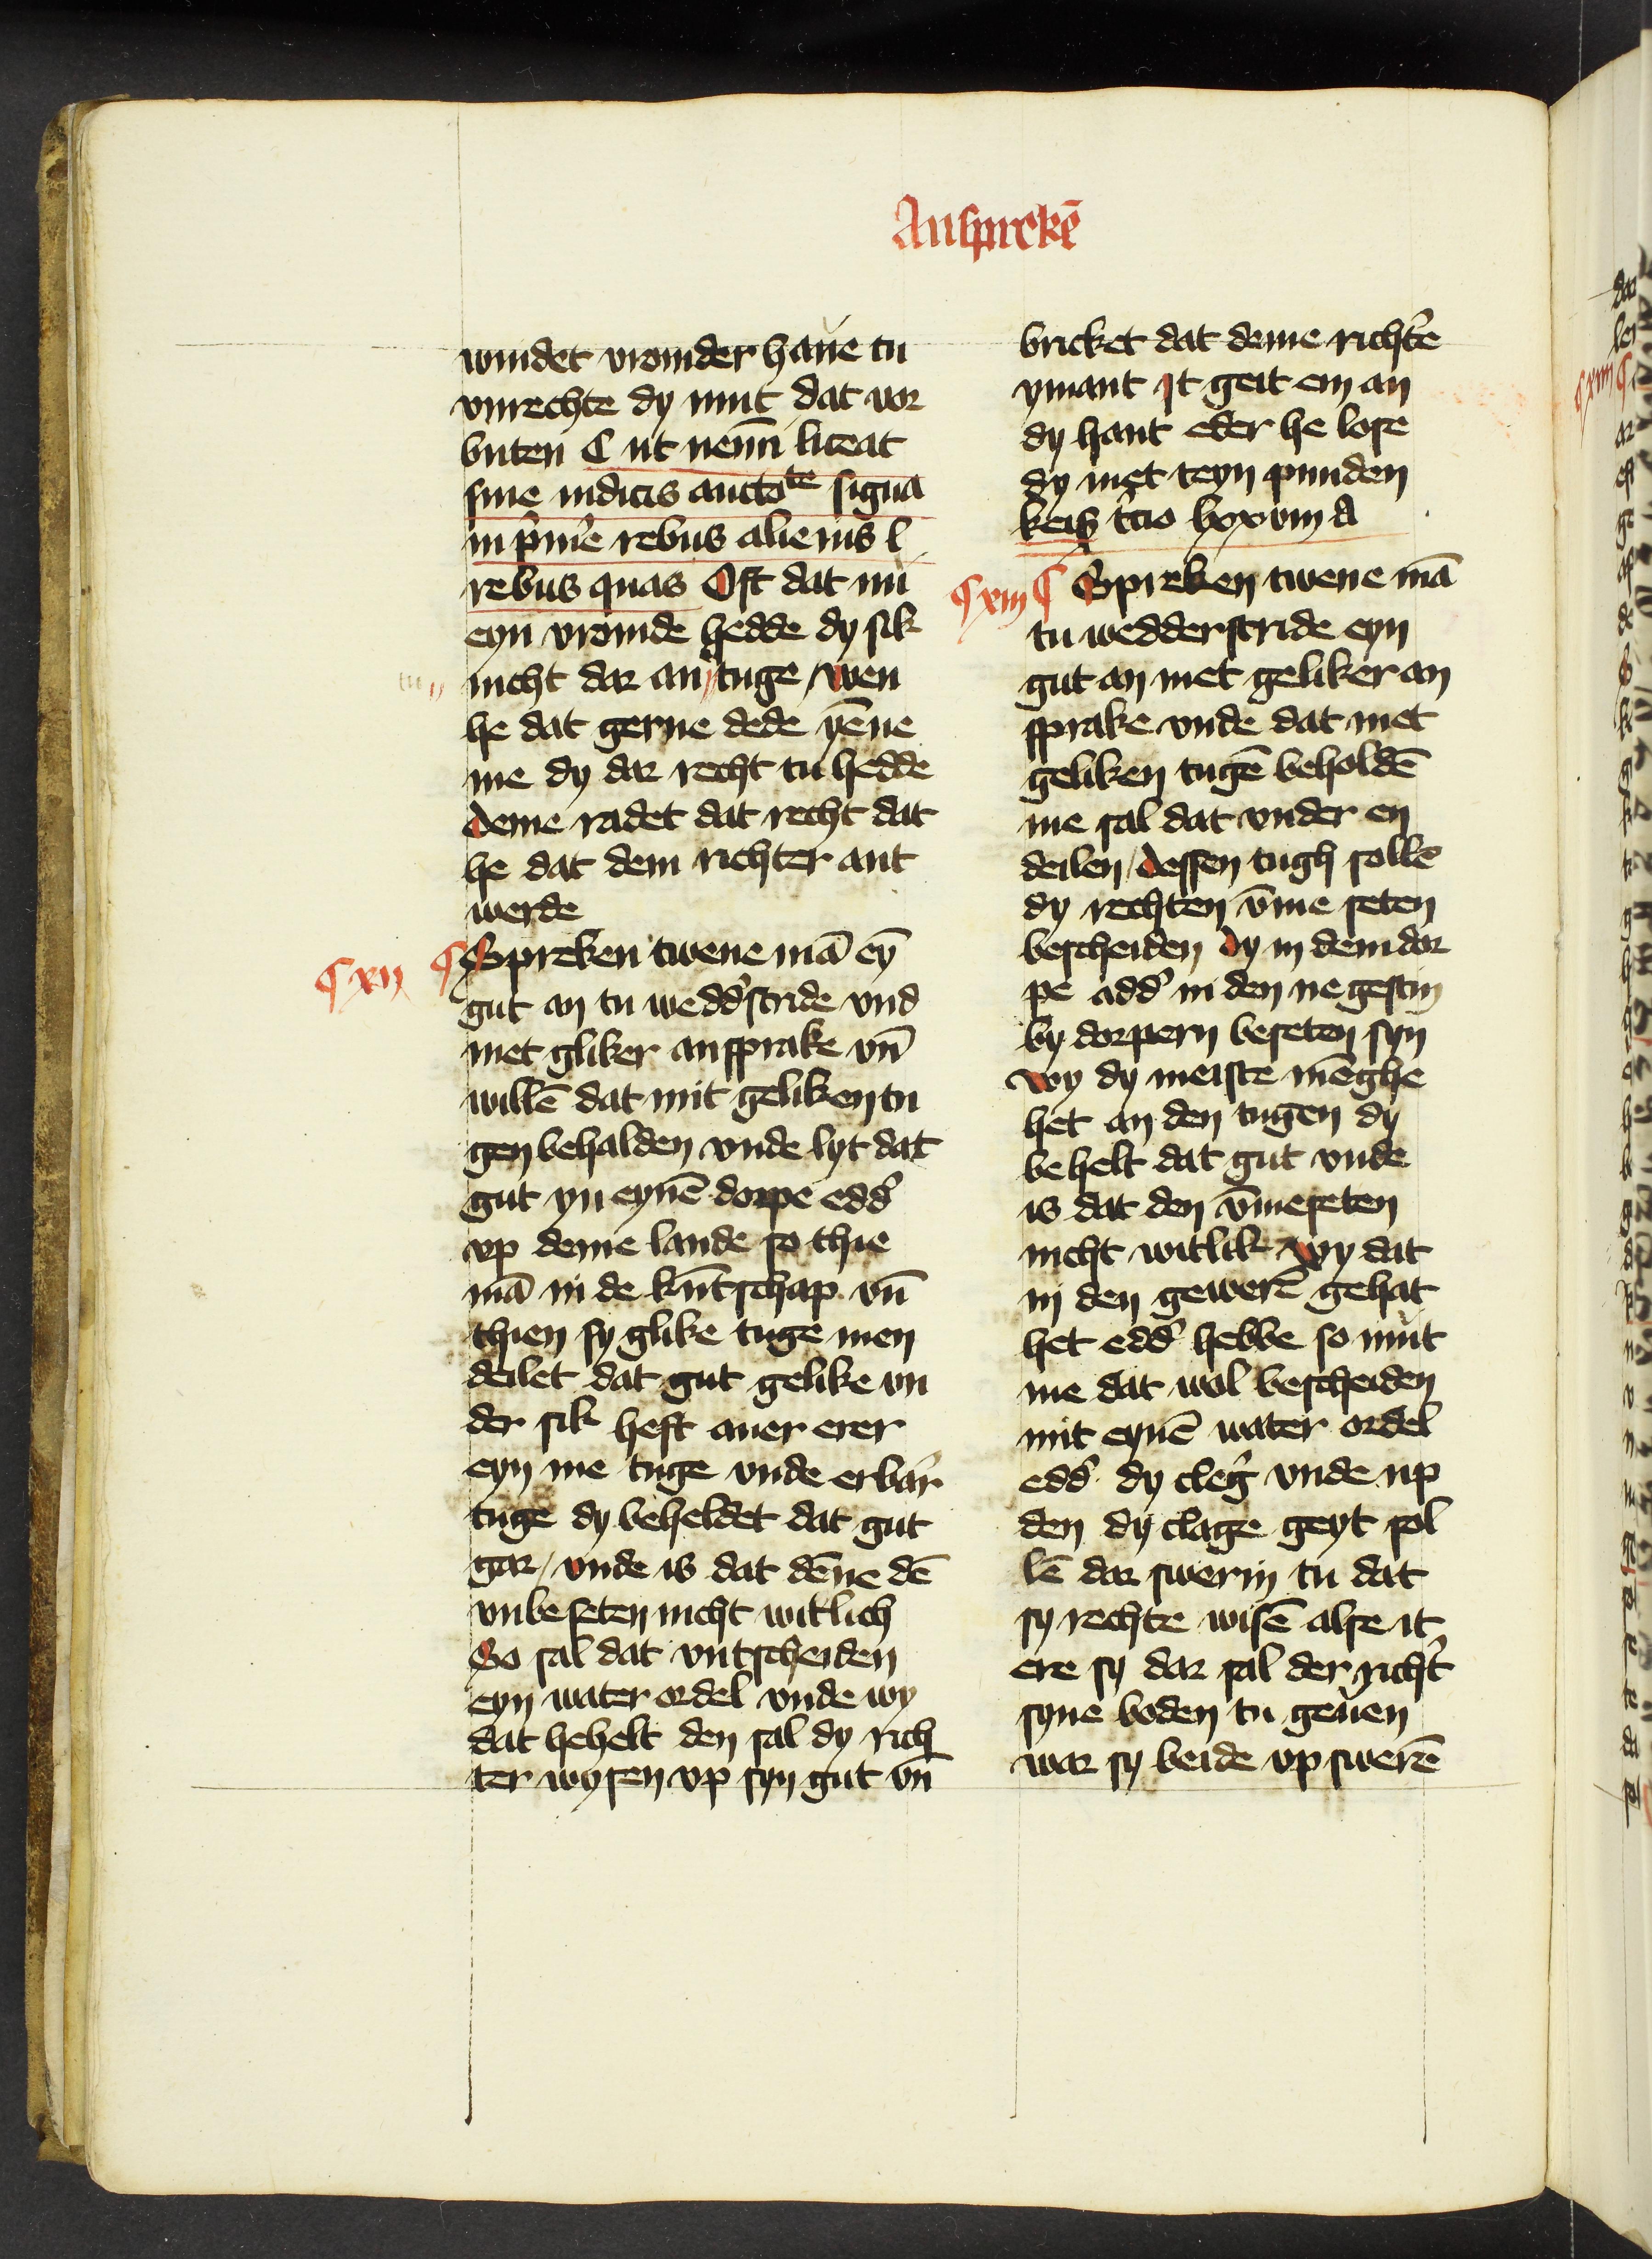 Ansprekē
windet vromder haue tu
vnrechte dy mut dat vor
buten C ut nemī liceat
sine iudicis aucto^te signa
inp̄m̄e rebus alienis l
rebus quas Oft dat nu
eyn vromde hedde dy sik
nicht dar an tuge / wen
tu
he dat gerne dede yēne
me dy dar recht tu hedde
deme radet dat recht dat
he dat dem richter ant
werde
¶ xii ¶ Spreken twene mā eȳ
gut an tu wedd̓stride vnd
met gliker ansprake vn̄
willē dat mit geliken tu
gen behalden vnde lyt dat
gut yn eynē dorpe edd̓
vp deme lande so thie
mā in de kūtschap vn̄
thien sy glike tuge men
deilet dat gut gelike vn
der sik heft auer erer
eyn me tuge vnde erbar̓
tuge dy beheldet dat gut
gar / vnde is dat dēne dē
vmbeseten nicht witlich
So sal dat vntscheiden
eyn water ordel vnde wy
dat behelt den sal dy rich
ter wysen vp syn gut vn̄
bricket dat deme richt̓e
ymant it geit em an
dy hant eder he lose
dy met teyn punden
keiß tcio lxxviii A
¶ xiii ¶ Spreken twene mā
tu wedderstride eyn
gut an met geliker an
sprake vnde dat met
geliken tugē beholdē
me sal dat vnder en
deilen / dessen tugh sollē
dy rechten v̄me seten
bescheiden dy in dem dor
pe add̓ in den negestin
by dorpern beseten syn
wy dy meiste mēghe
het an den tugen dy
behelt dat gut vnde
is dat den v̄meseten
nicht witlik wy dat
in den gewerē gehat
het edd̓ hebbe so mut
me dat wol bescheiden
mit eynē water ordel
edd̓ dy cleg̓ vnde up
den dy clage geyt sol
lē dar swerin tu dat
sy rechte wisē alse it
ere sy dar sal der richt̓
syne boden tu geuen
war sy beide vp swerē